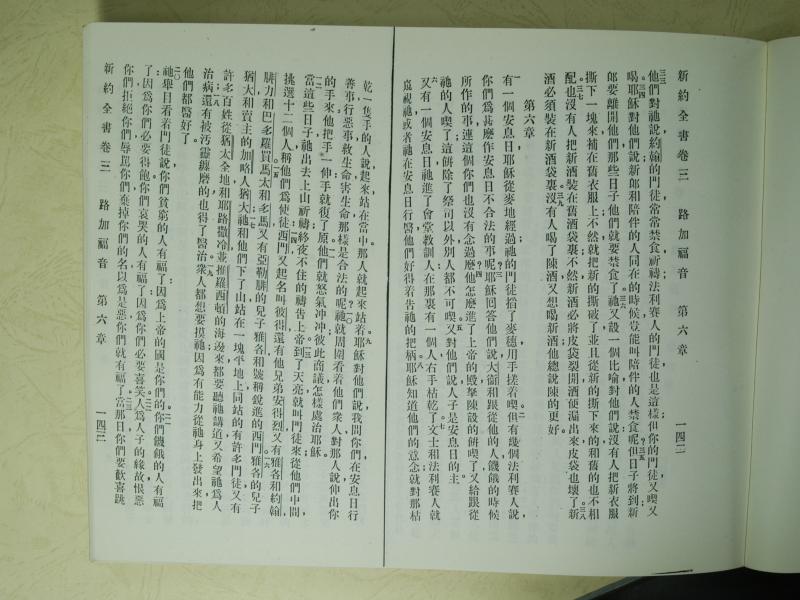 新約全書卷三　路加福音　第六章　一四二
他們對祂說約翰的門徒常常禁食祈禱法利賽人的門徒也是這樣但你的門徒又喫又
喝耶穌對他們說新郎和陪伴的人同在的時候豈能叫陪伴的人禁食呢但日子將到新
郎要離開他們那些日子他們就要禁食了祂又設一個比喻對他們說沒有人把新衣服
撕下一塊來補在舊衣服上不然就把新的撕破了並且從新的撕下來的和舊的也不相
配也沒有人把新酒裝在舊酒袋裏不然新酒必將皮袋裂開酒便漏出來皮袋也壞了新
酒必須裝在新酒袋裏沒有人喝了陳酒又想喝新酒他總說陳的更好
第六章
有一個安息日耶穌從麥地經過祂的門徒掐了麥穗用手搓着喫但有幾個法利賽人說
你們爲甚麼作安息日不合法的事呢耶穌回答他們說大衞和跟從他的人饑餓的時候
所作的事連這個你們也沒有念過麼他怎麼進了上帝的殿拏陳設的餅喫了又給跟從
祂的人喫了這餅除了祭司以外別人都不可喫又對他們說人子是安息日的主
又有一個安息日祂進了會堂教訓人在那裏有一個人右手枯乾了文士和法利賽人就
窺視祂或者祂在安息日行醫他們好得着告祂的把柄耶穌知道他們的意念就對那枯
乾一隻手的人說起來站在當中那人就起來站着耶穌對他們說我問你們在安息日行
善事行惡事救生命害生命那樣是合法的呢祂就周圍看着他們衆人對那人說伸出你
的手來他把手一伸手就復了原他們就怒氣冲冲彼此商議怎樣處治耶穌
當這些日子祂出去上山祈禱終夜不住的禱告上帝到了天亮就叫門徒來從他們中間
挑選十二個人稱他們爲使徒西門又起名叫彼得還有他兄弟安得烈又有雅各和約翰
腓力和巴多羅買馬太和多馬又有亞勒腓的兒子雅各和號稱銳進的西門雅各的兒子
猶大和賣主的加略人猶大祂和他們下了山站在一塊平地上同站的有許多門徒又有
許多百姓從猶太全地和耶路撒冷並推羅西頓的海邊來都要聽祂講道又希望祂爲人
治病還有被汚靈纏磨的也得了醫治衆人都想要摸祂因爲有能力從祂身上發出來把
他們都醫好了
祂舉目看着門徒說你們貧窮的人有福了因爲上帝的國是你們的你們饑餓的人有福
了因爲你們必要得飽你們哀哭的人有福了因爲你們必要喜笑人爲人子的緣故恨惡
你們拒絕你們辱罵你們棄掉你們的名以爲是惡你們就有福了當那日你們要歡喜跳
新約全書卷三　路加福音　第六章　一四三